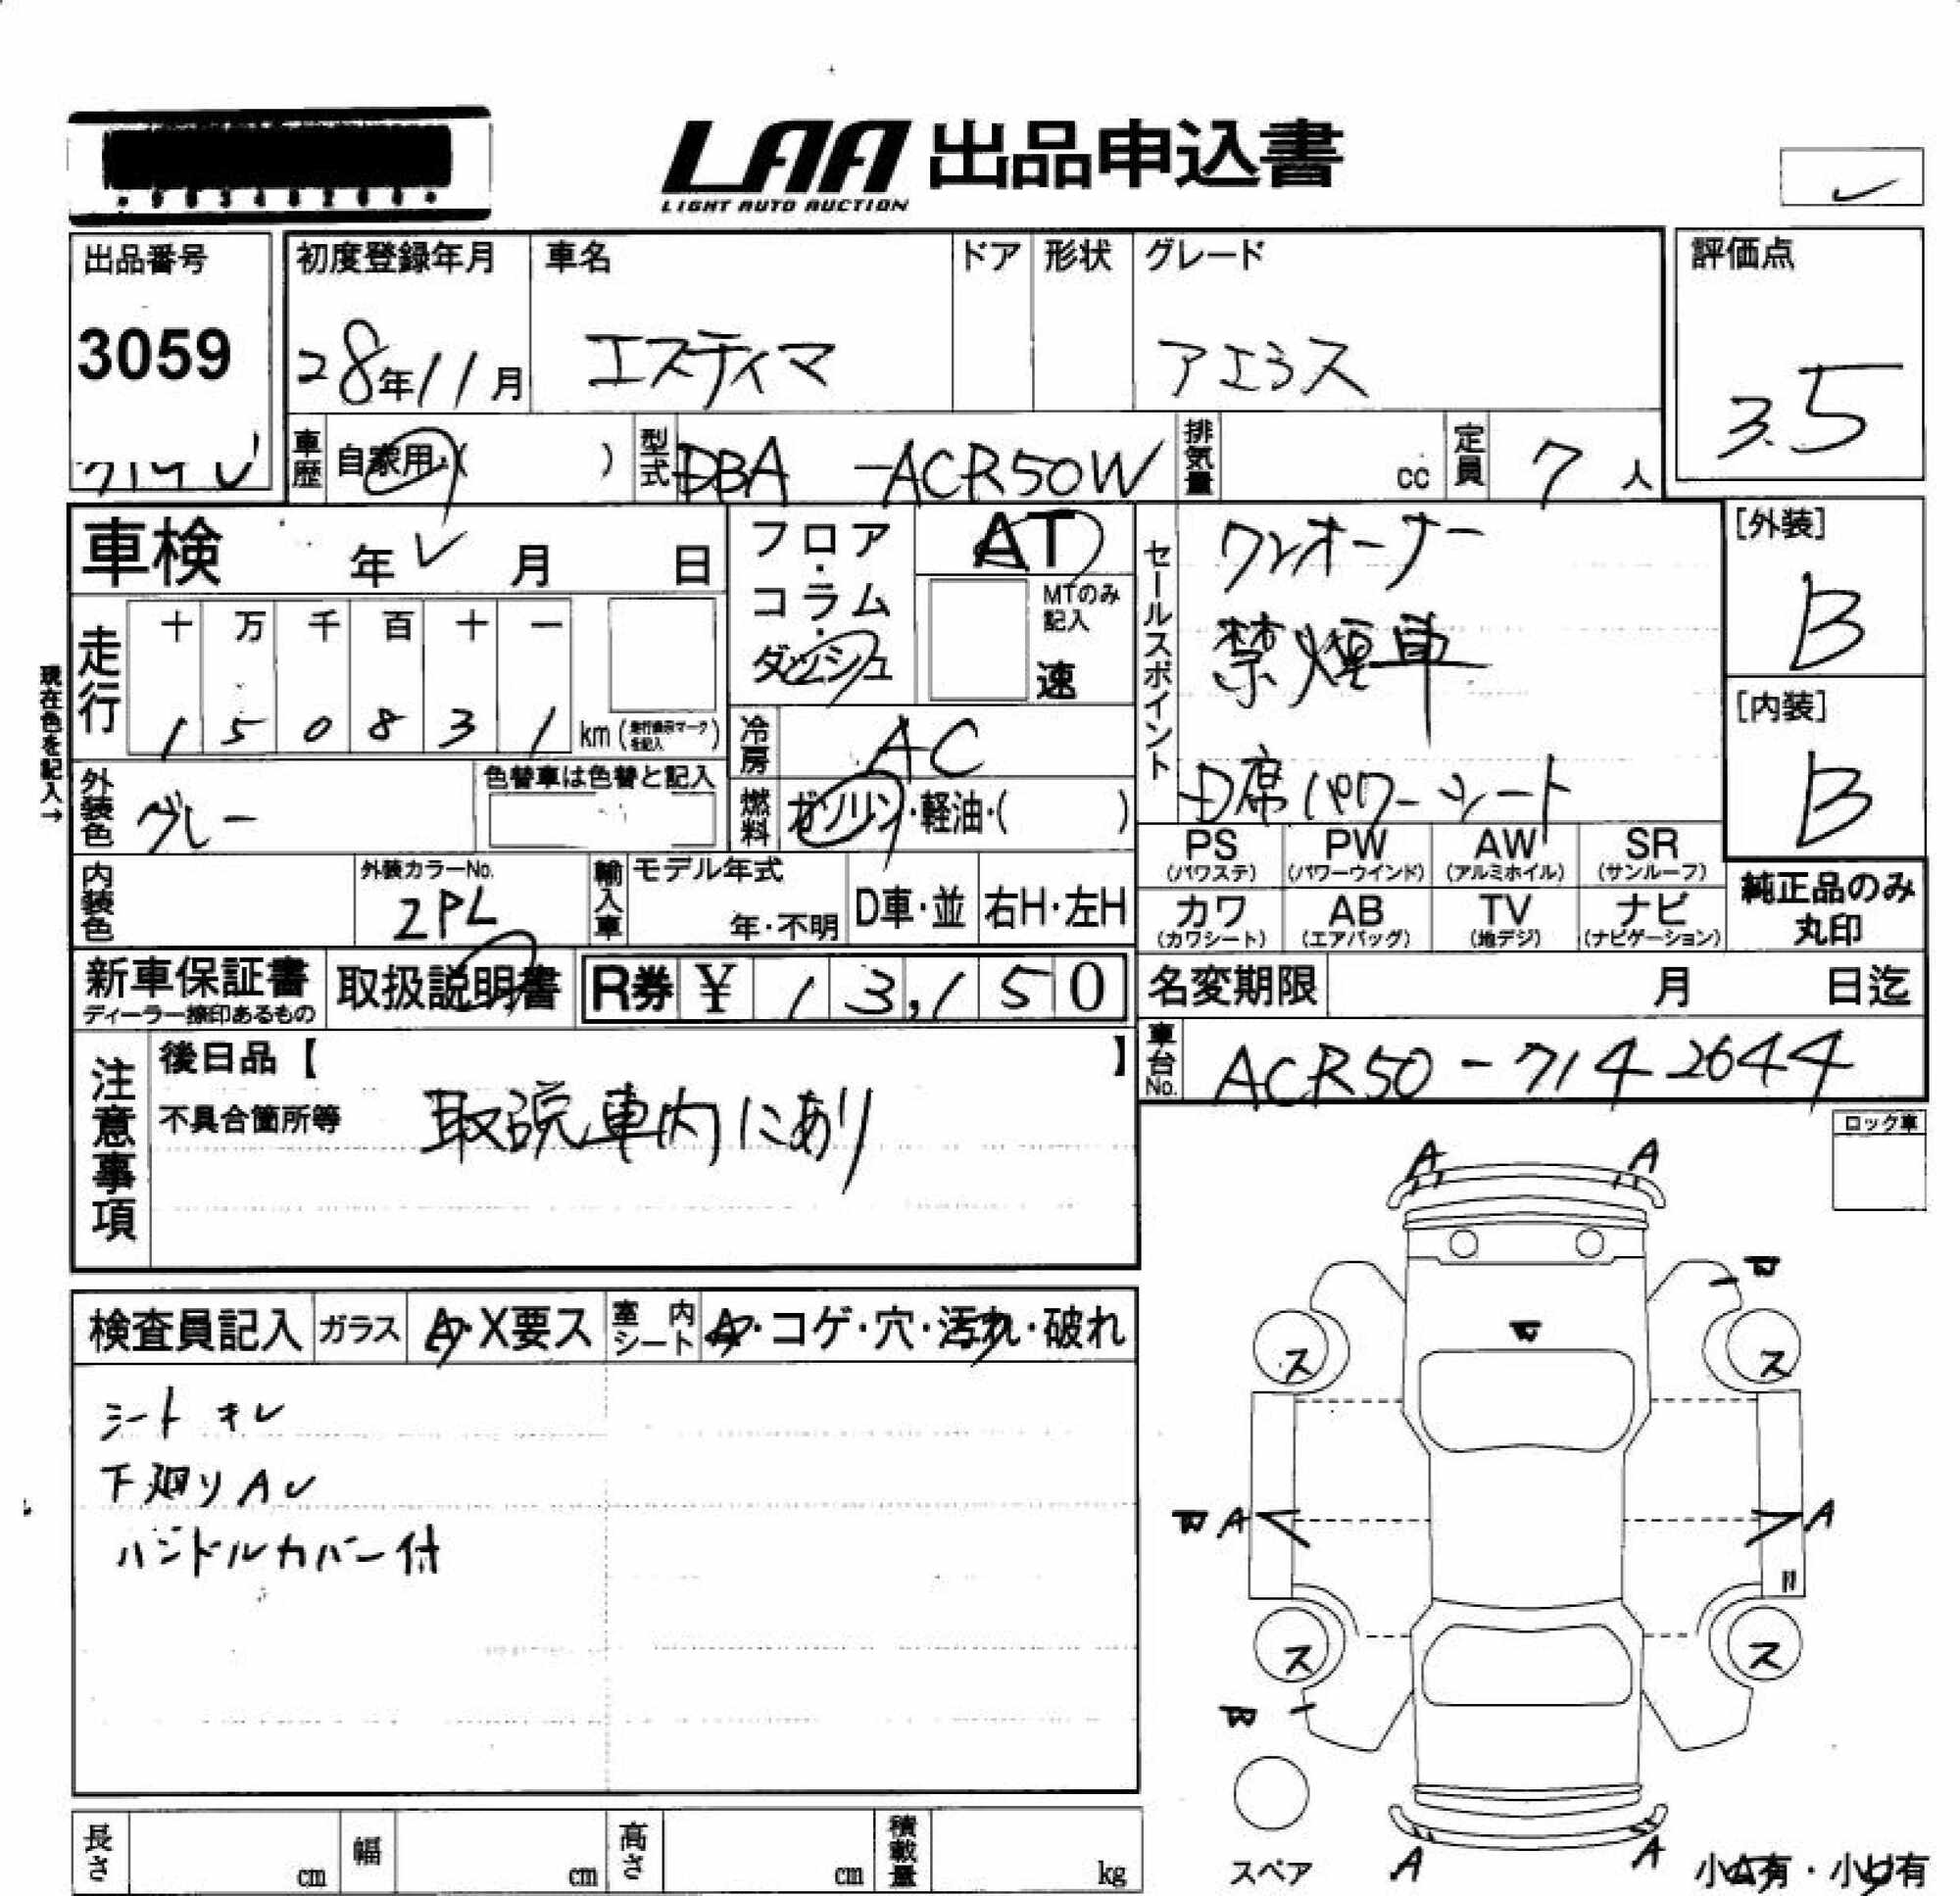 LAA 出品申込書
LIGHT AUTO AUCTION
出品番号
3059
初度登録年月
28年11月
車名
エスティマ
ドア
形状
グレード
アエラス
評価点
3.5
車歴
自家用・( )
型式
DBA -ACR50W
排気量
cc
定員
7人
車検 年 月 日
走行
十 万 千 百 十 一
1 5 0 8 3 1 km
現在色を記入→
フロア・コラム・ダッシュ
AT
MTのみ記入
速
冷房
AC
燃料
ガソリン・軽油・( )
外装色
グレー
色替車は色替と記入
内装色
外装カラーNo.
2PL
輸入車
モデル年式
年・不明
D車・並
右H・左H
セールスポイント
ワンオーナー
禁煙車
D席パワーシート
[外装]
B
[内装]
B
PS (パワステ)
PW (パワーウインド)
AW (アルミホイル)
SR (サンルーフ)
カワ (カワシート)
AB (エアバッグ)
TV (地デジ)
ナビ (ナビゲーション)
純正品のみ
丸印
新車保証書
ディーラー捺印あるもの
取扱説明書
R券 ¥ 13,150
名変期限 月 日迄
車台No.
ACR50-7142644
注意事項
後日品【 】
不具合箇所等
取説車内にあり
ロック車
検査員記入
ガラス
A・X要ス
室内シート
A・コゲ・穴・汚れ・破れ
シートキレ
下廻りAU
ハンドルカバー付
A A
ス ス
A A
ス ス
A A
スペア
小A有・小U有
長さ cm
幅 cm
高さ cm
積載量 kg